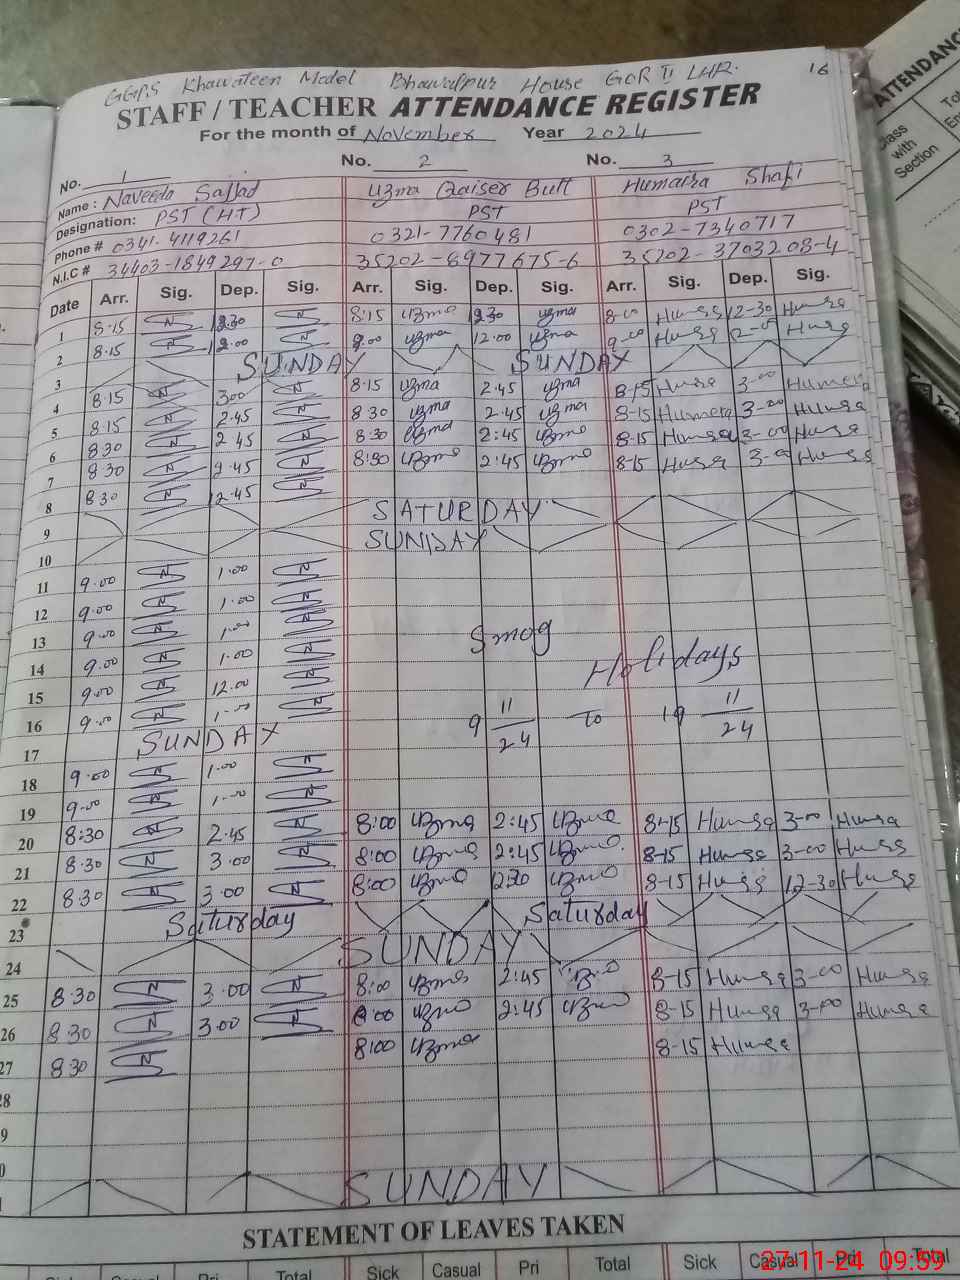 16
GGPS Khawateen Model Bhawalpur House GOR II LHR.
STAFF / TEACHER ATTENDANCE REGISTER
For the month of November Year 2024
No. 1 No. 2 No. 3
Name : Naveeda Sajjad Uzma Qaiser Butt Humaira Shafi
Designation: PST (HT) PST PST
Phone # 0341-4119261 0321-7760481 0302-7340717
N.I.C # 34403-1849297-0 35202-8977675-6 35202-3703208-4
Date Arr. Sig. Dep. Sig. Arr. Sig. Dep. Sig. Arr. Sig. Dep. Sig.
1 8.15 N 12.30 N 8:15 uzma 12.30 uzma 8-00 12-30
2 8.15 N 12.00 N 9.00 uzma 12.00 uzma 9-00 12-00
3 SUNDAY SUNDAY
4 8.15 N 3.00 N 8.15 uzma 2.45 uzma 8-15 3-00 Humera
5 8.15 N 2.45 N 8.30 uzma 2.45 uzma 8-15 Humera 3-00
6 8.30 N 2.45 N 8.30 uzma 2:45 uzma 8-15 3-00
7 8.30 N 2.45 N 8:30 uzma 2:45 uzma 8-15 3-00
8 8.30 N 12.45 N
9 SATURDAY
10 SUNDAY
11 9.00 N 1.00 N
12 9.00 N 1.00 N
13 9.00 N 1.00 N
14 9.00 N 1.00 N
15 9.00 N 12.00 N
16 9.00 N 1.00 N
Smog Holidays
9 11/24 to 19 11/24
17 SUNDAY
18 9.00 N 1.00 N
19 9.00 N 1.00 N
20 8:30 N 2.45 N 8:00 uzma 2:45 uzma 8-15 3-00
21 8.30 N 3.00 N 8:00 uzma 2:45 uzma 8-15 3-00
22 8.30 N 3.00 N 8:00 uzma 12:30 uzma 8-15 12-30
23 Saturday Saturday
24 SUNDAY
25 8.30 N 3.00 N 8:00 uzma 2:45 uzma 8-15 3-00
26 8.30 N 3.00 N 8:00 uzma 2:45 uzma 8-15 3-00
27 8.30 N 8:00 uzma 8-15
28
9
0
SUNDAY
STATEMENT OF LEAVES TAKEN
Sick Casual Pri Total Sick Casual Pri Total Sick Casual Pri Total
27-11-24 09:59
ATTENDANC
Class with Section